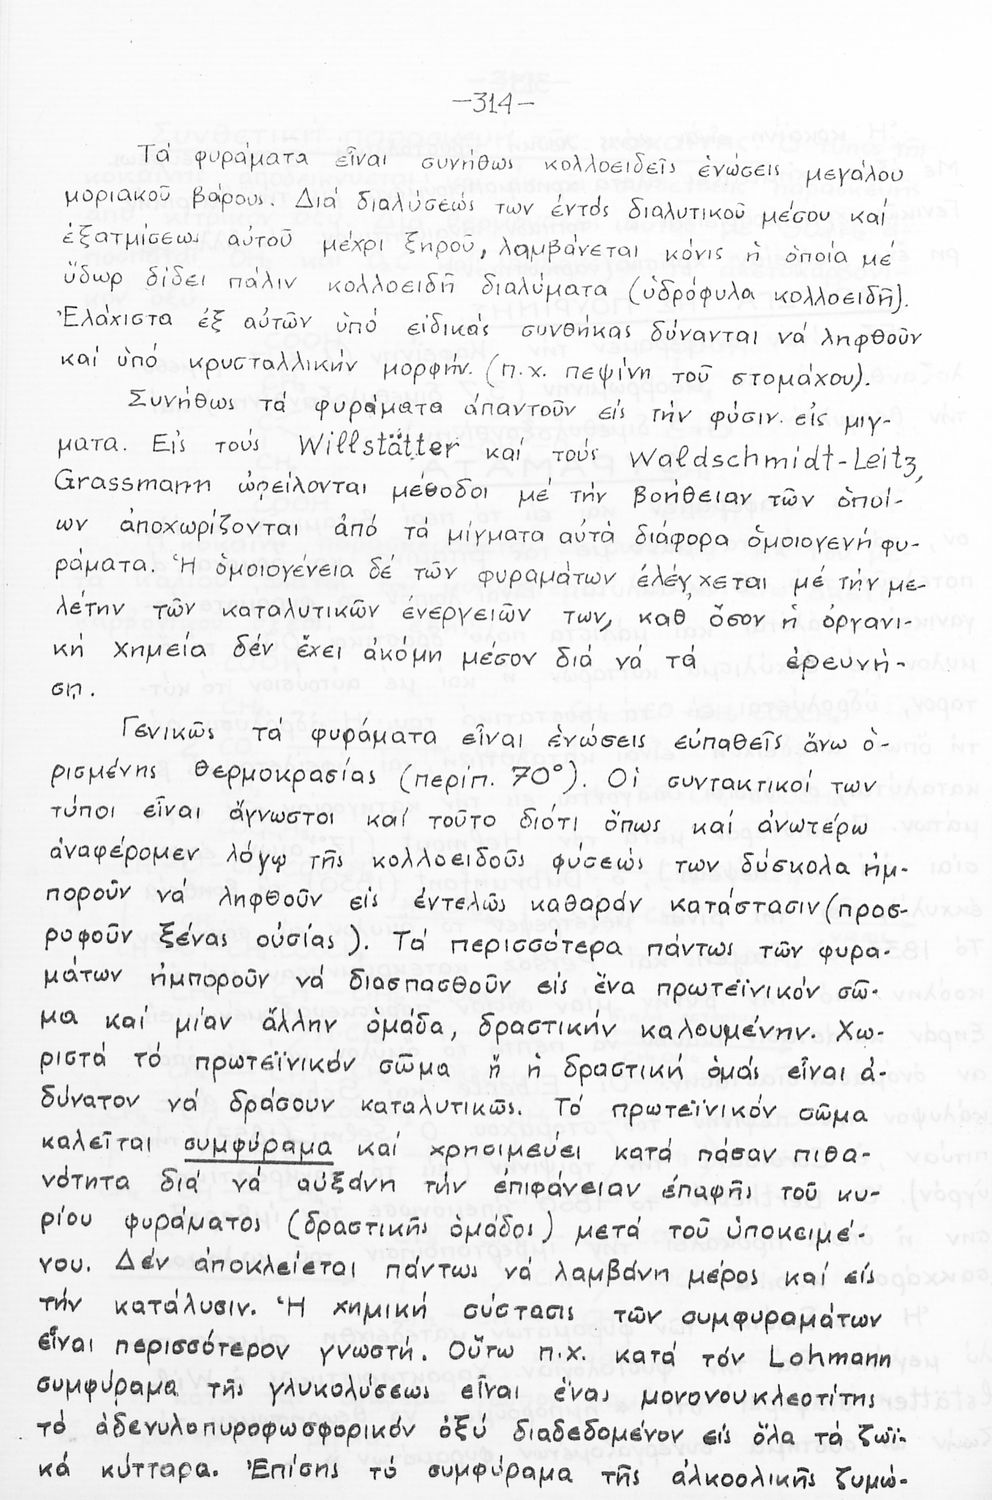 -314-
Τά φυράματα εἶναι συνήθως κολλοειδεῖς ἑνώσεις μεγάλου
μοριακοῦ βάρους. Διά διαλύσεώς των ἐντός διαλυτικοῦ μέσου καί
ἐξατμίσεως αὐτοῦ μέχρι ξηροῦ, λαμβάνεται κόνις ἡ ὁποία μέ
ὕδωρ δίδει πάλιν κολλοειδῆ διαλύματα (ὑδρόφυλα κολλοειδῆ).
Ἐλάχιστα ἐξ αὐτῶν ὑπό εἰδικάς συνθήκας δύνανται νά ληφθοῦν
καί ὑπό κρυσταλλικήν μορφήν. (π.χ. πεψίνη τοῦ στομάχου).
Συνήθως τά φυράματα ἀπαντοῦν εἰς τήν φύσιν εἰς μίγ-
ματα. Εἰς τούς Willstätter καί τούς Waldschmidt-Leitz,
Grassmann ὠφείλονται μέθοδοι μέ τήν βοήθειαν τῶν ὁποί-
ων ἀποχωρίζονται ἀπό τά μίγματα αὐτά διάφορα ὁμοιογενῆ φυ-
ράματα. Ἡ ὁμοιογένεια δέ τῶν φυραμάτων ἐλέγχεται μέ τήν με-
λέτην τῶν καταλυτικῶν ἐνεργειῶν των, καθ ὅσον ἡ ὀργανι-
κή χημεία δέν ἔχει ἀκόμη μέσον διά νά τά ἐρευνή-
σῃ.
Γενικῶς τά φυράματα εἶναι ἑνώσεις εὐπαθεῖς ἄνω ὡ-
ρισμένης θερμοκρασίας (περίπ. 70°). Οἱ συντακτικοί των
τύποι εἶναι ἄγνωστοι καί τοῦτο διότι ὅπως καί ἀνωτέρω
ἀναφέρομεν λόγῳ τῆς κολλοειδοῦς φύσεώς των δύσκολα ἠμ-
ποροῦν νά ληφθοῦν εἰς ἐντελῶς καθαράν κατάστασιν (προσ-
ροφοῦν ξένας οὐσίας). Τά περισσότερα πάντως τῶν φυρα-
μάτων ἠμποροῦν νά διασπασθοῦν εἰς ἕνα πρωτεϊνικόν σῶ-
μα καί μίαν ἄλλην ὁμάδα, δραστικήν καλουμένην. Χω-
ριστά τό πρωτεϊνικόν σῶμα ἤ ἡ δραστική ὁμάς εἶναι ἀ-
δύνατον νά δράσουν καταλυτικῶς. Τό πρωτεϊνικόν σῶμα
καλεῖται συμφύραμα καί χρησιμεύει κατά πᾶσαν πιθα-
νότητα διά νά αὐξάνη τήν ἐπιφάνειαν ἐπαφῆς τοῦ κυ-
ρίου φυράματος (δραστικῆς ὁμάδος) μετά τοῦ ὑποκειμέ-
νου. Δέν ἀποκλείεται πάντως νά λαμβάνη μέρος καί εἰς
τήν κατάλυσιν. Ἡ χημική σύστασις τῶν συμφυραμάτων
εἶναι περισσότερον γνωστή. Οὕτω π.χ. κατά τόν Lohmann
συμφύραμα τῆς γλυκολύσεως εἶναι ἕνας μονονουκλεοτίτης
τό ἀδενυλοπυροφωσφορικόν ὀξύ διαδεδομένον εἰς ὅλα τά ζωϊ-
κά κύτταρα. Ἐπίσης τό συμφύραμα τῆς ἀλκοολικῆς ζυμώ-